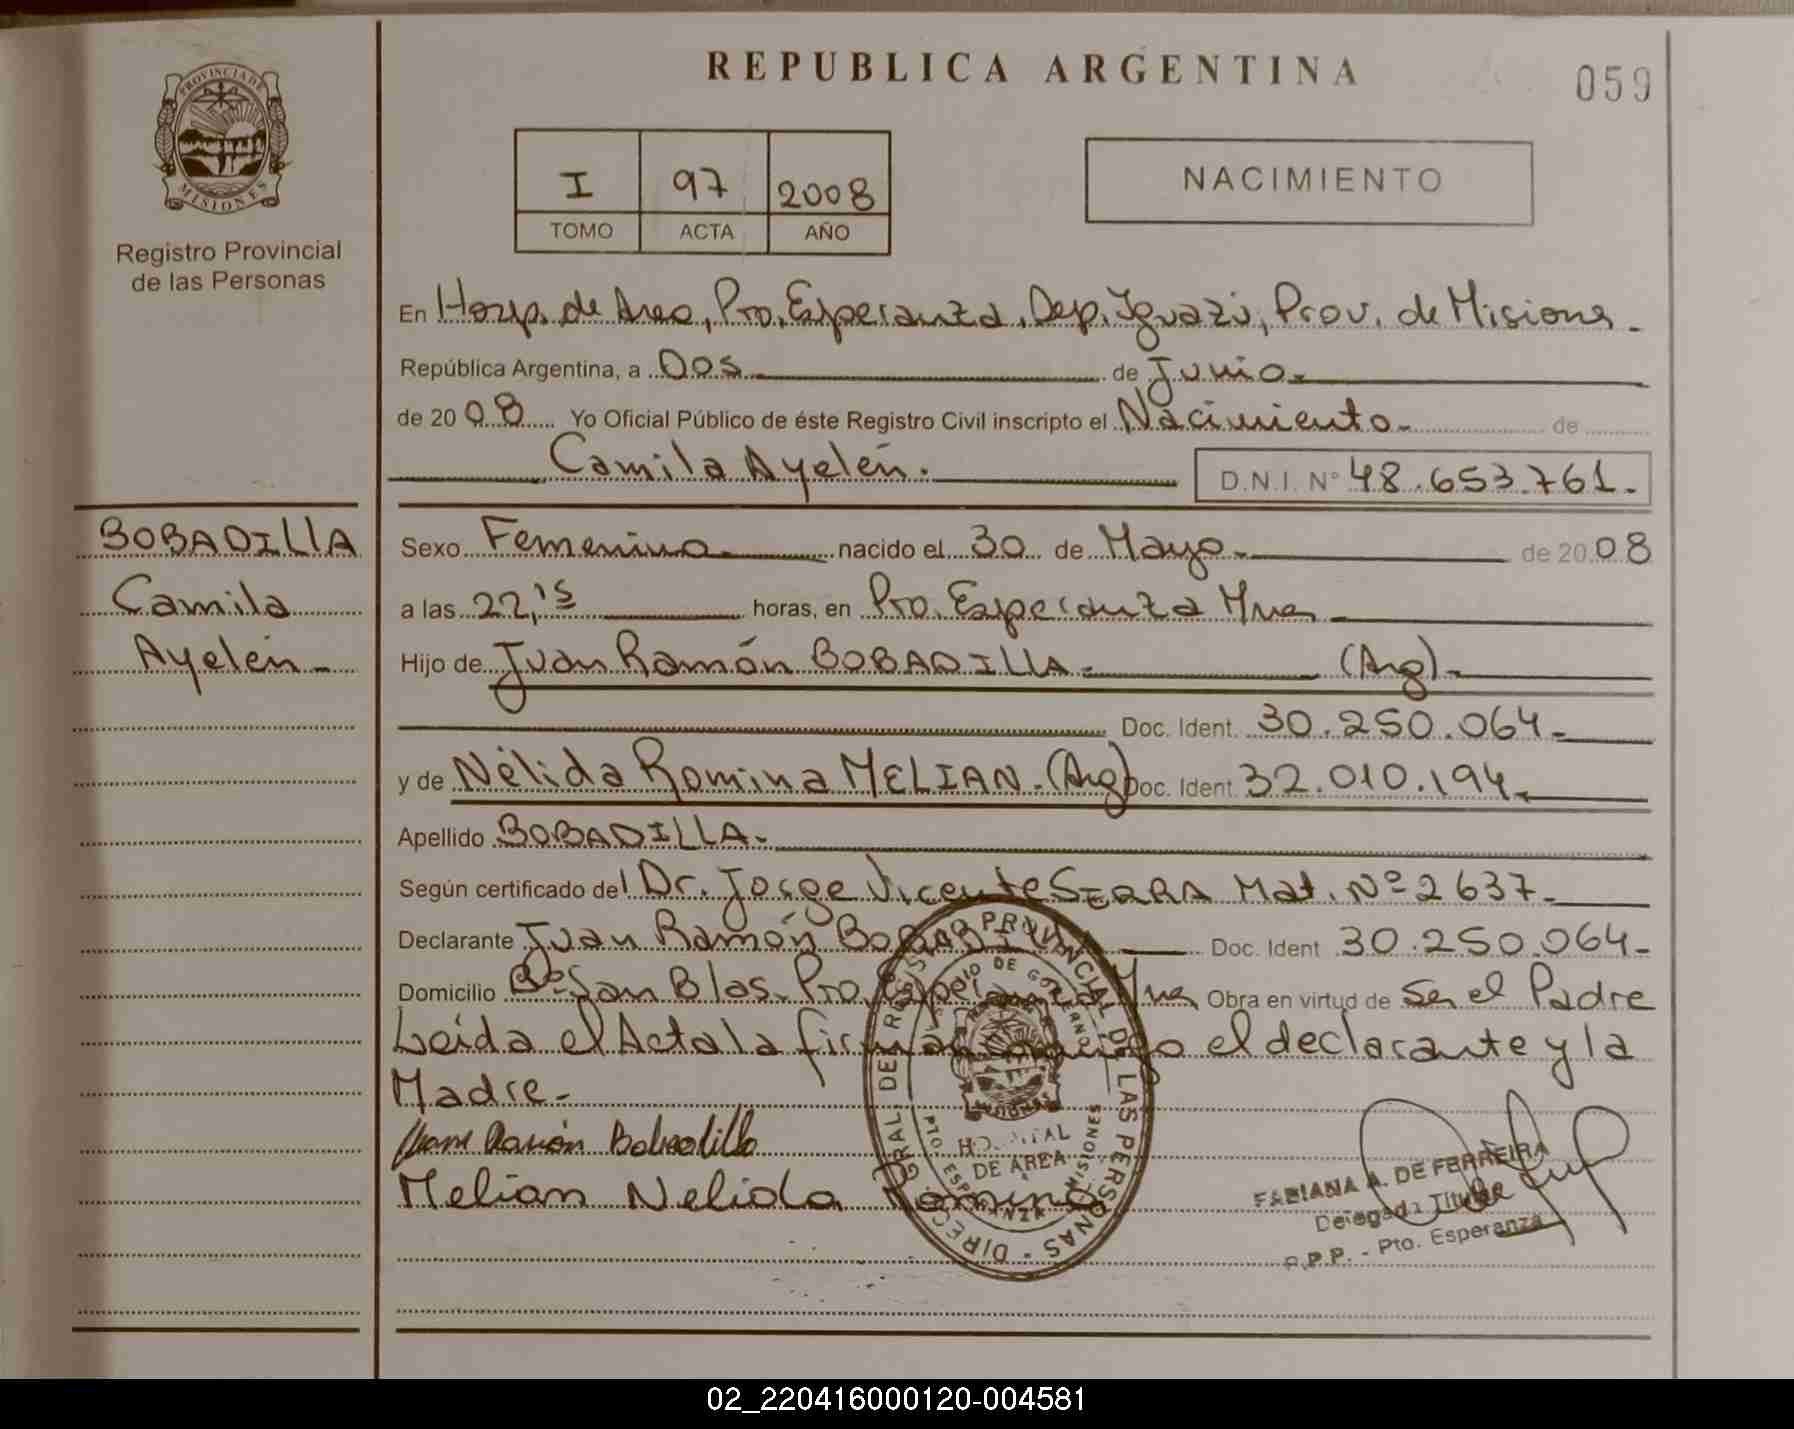 REPUBLICA ARGENTINA
059
PROVINCIA DE MISIONES
Registro Provincial
de las Personas
I 97 2008
TOMO ACTA AÑO
NACIMIENTO
En Hosp. de Area, Pto. Esperanza, Dep. Iguazú, Prov. de Misiones.
República Argentina, a Dos de Junio.
de 2008 Yo Oficial Público de éste Registro Civil inscripto el Nacimiento. de
Camila Ayelén. D.N.I. Nº 48.653.761.
BOBADILLA
Camila
Ayelén
Sexo Femenino nacido el 30 de Mayo. de 2008
a las 22,15 horas, en Pto. Esperanza Mnes
Hijo de Juan Ramón BOBADILLA. (Arg).
Doc. Ident. 30.250.064.
y de Nélida Romina MELIAN. (Arg) Doc. Ident. 32.010.194.
Apellido BOBADILLA.
Según certificado del Dr. Jorge Vicente SERRA Mat. Nº 2637.
Declarante Juan Ramón BOBADILLA Doc. Ident 30.250.064
Domicilio Bº San Blas. Pto. Esperanza Mnes Obra en virtud de Ser el Padre
Leída el Acta la firman conmigo el declarante y la
Madre.
Juan Ramón Bobadilla
Melian Nelida Romina
DIRECC. GRAL DEL REGISTRO PROVINCIAL DE LAS PERSONAS
MINISTERIO DE GOBIERNO
HOSPITAL
DE AREA
PTO ESPERANZA MISIONES
FABIANA A. DE FERREIRA
Delegada Titular
R.P.P. - Pto. Esperanza
02_220416000120-004581